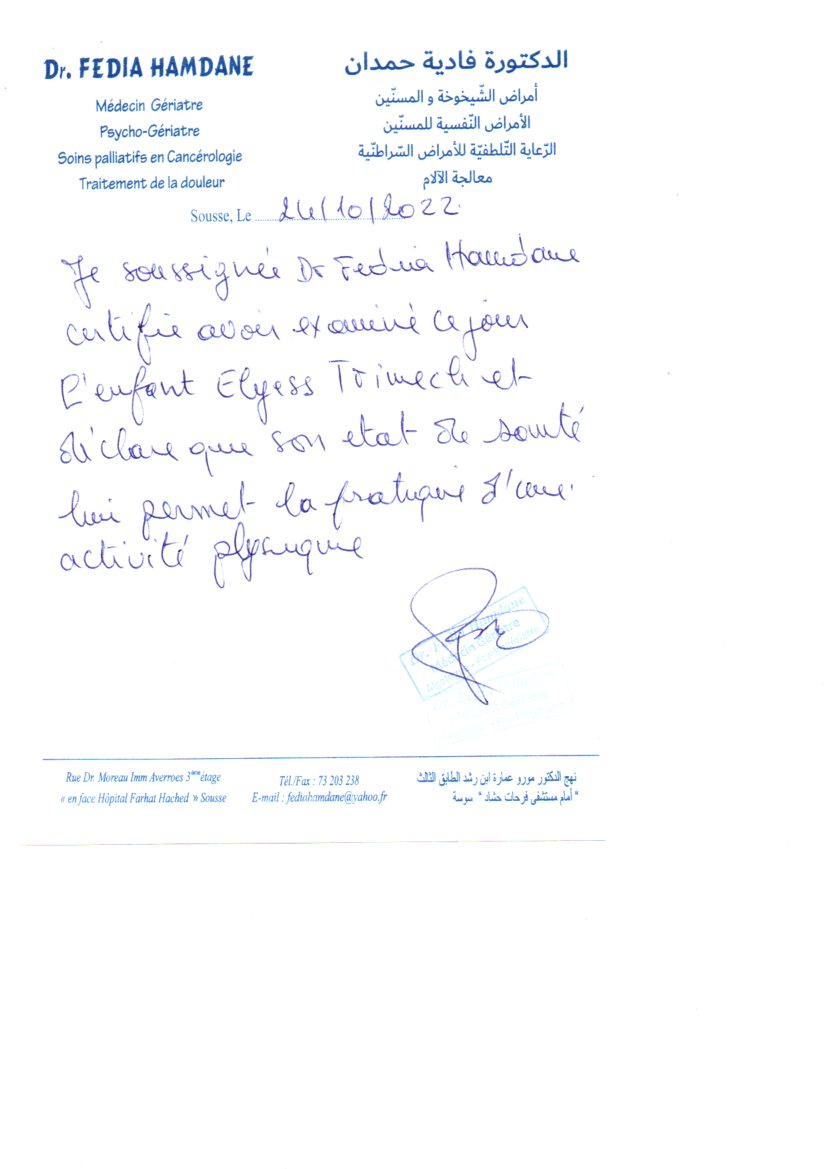 Dr. FEDIA HAMDANE
Médecin Gériatre
Psycho-Gériatre
Soins palliatifs en Cancérologie
Traitement de la douleur
الدكتورة فادية حمدان
أمراض الشّيخوخة و المسنّين
الأمراض النّفسية للمسنّين
الرّعاية التّلطفيّة للأمراض السّراطنّية
معالجة الآلام
Sousse, Le 24/10/2022
Je soussignée Dr Fedia Hamdane
certifie avoir examiné ce jour
L'enfant Elyess Trimech et
déclare que son etat de santé
lui permet la pratique d'une
activité physique
Dr. Hamdane
Médecin Gériatre
Rue Dr. Moreau Imm Averroes 3ème étage
« en face Hôpital Farhat Hached » Sousse
Tél./Fax : 73 203 238
E-mail : fediahamdane@yahoo.fr
نهج الدكتور مورو عمارة ابن رشد الطابق الثالث
" أمام مستشفى فرحات حشاد " سوسة